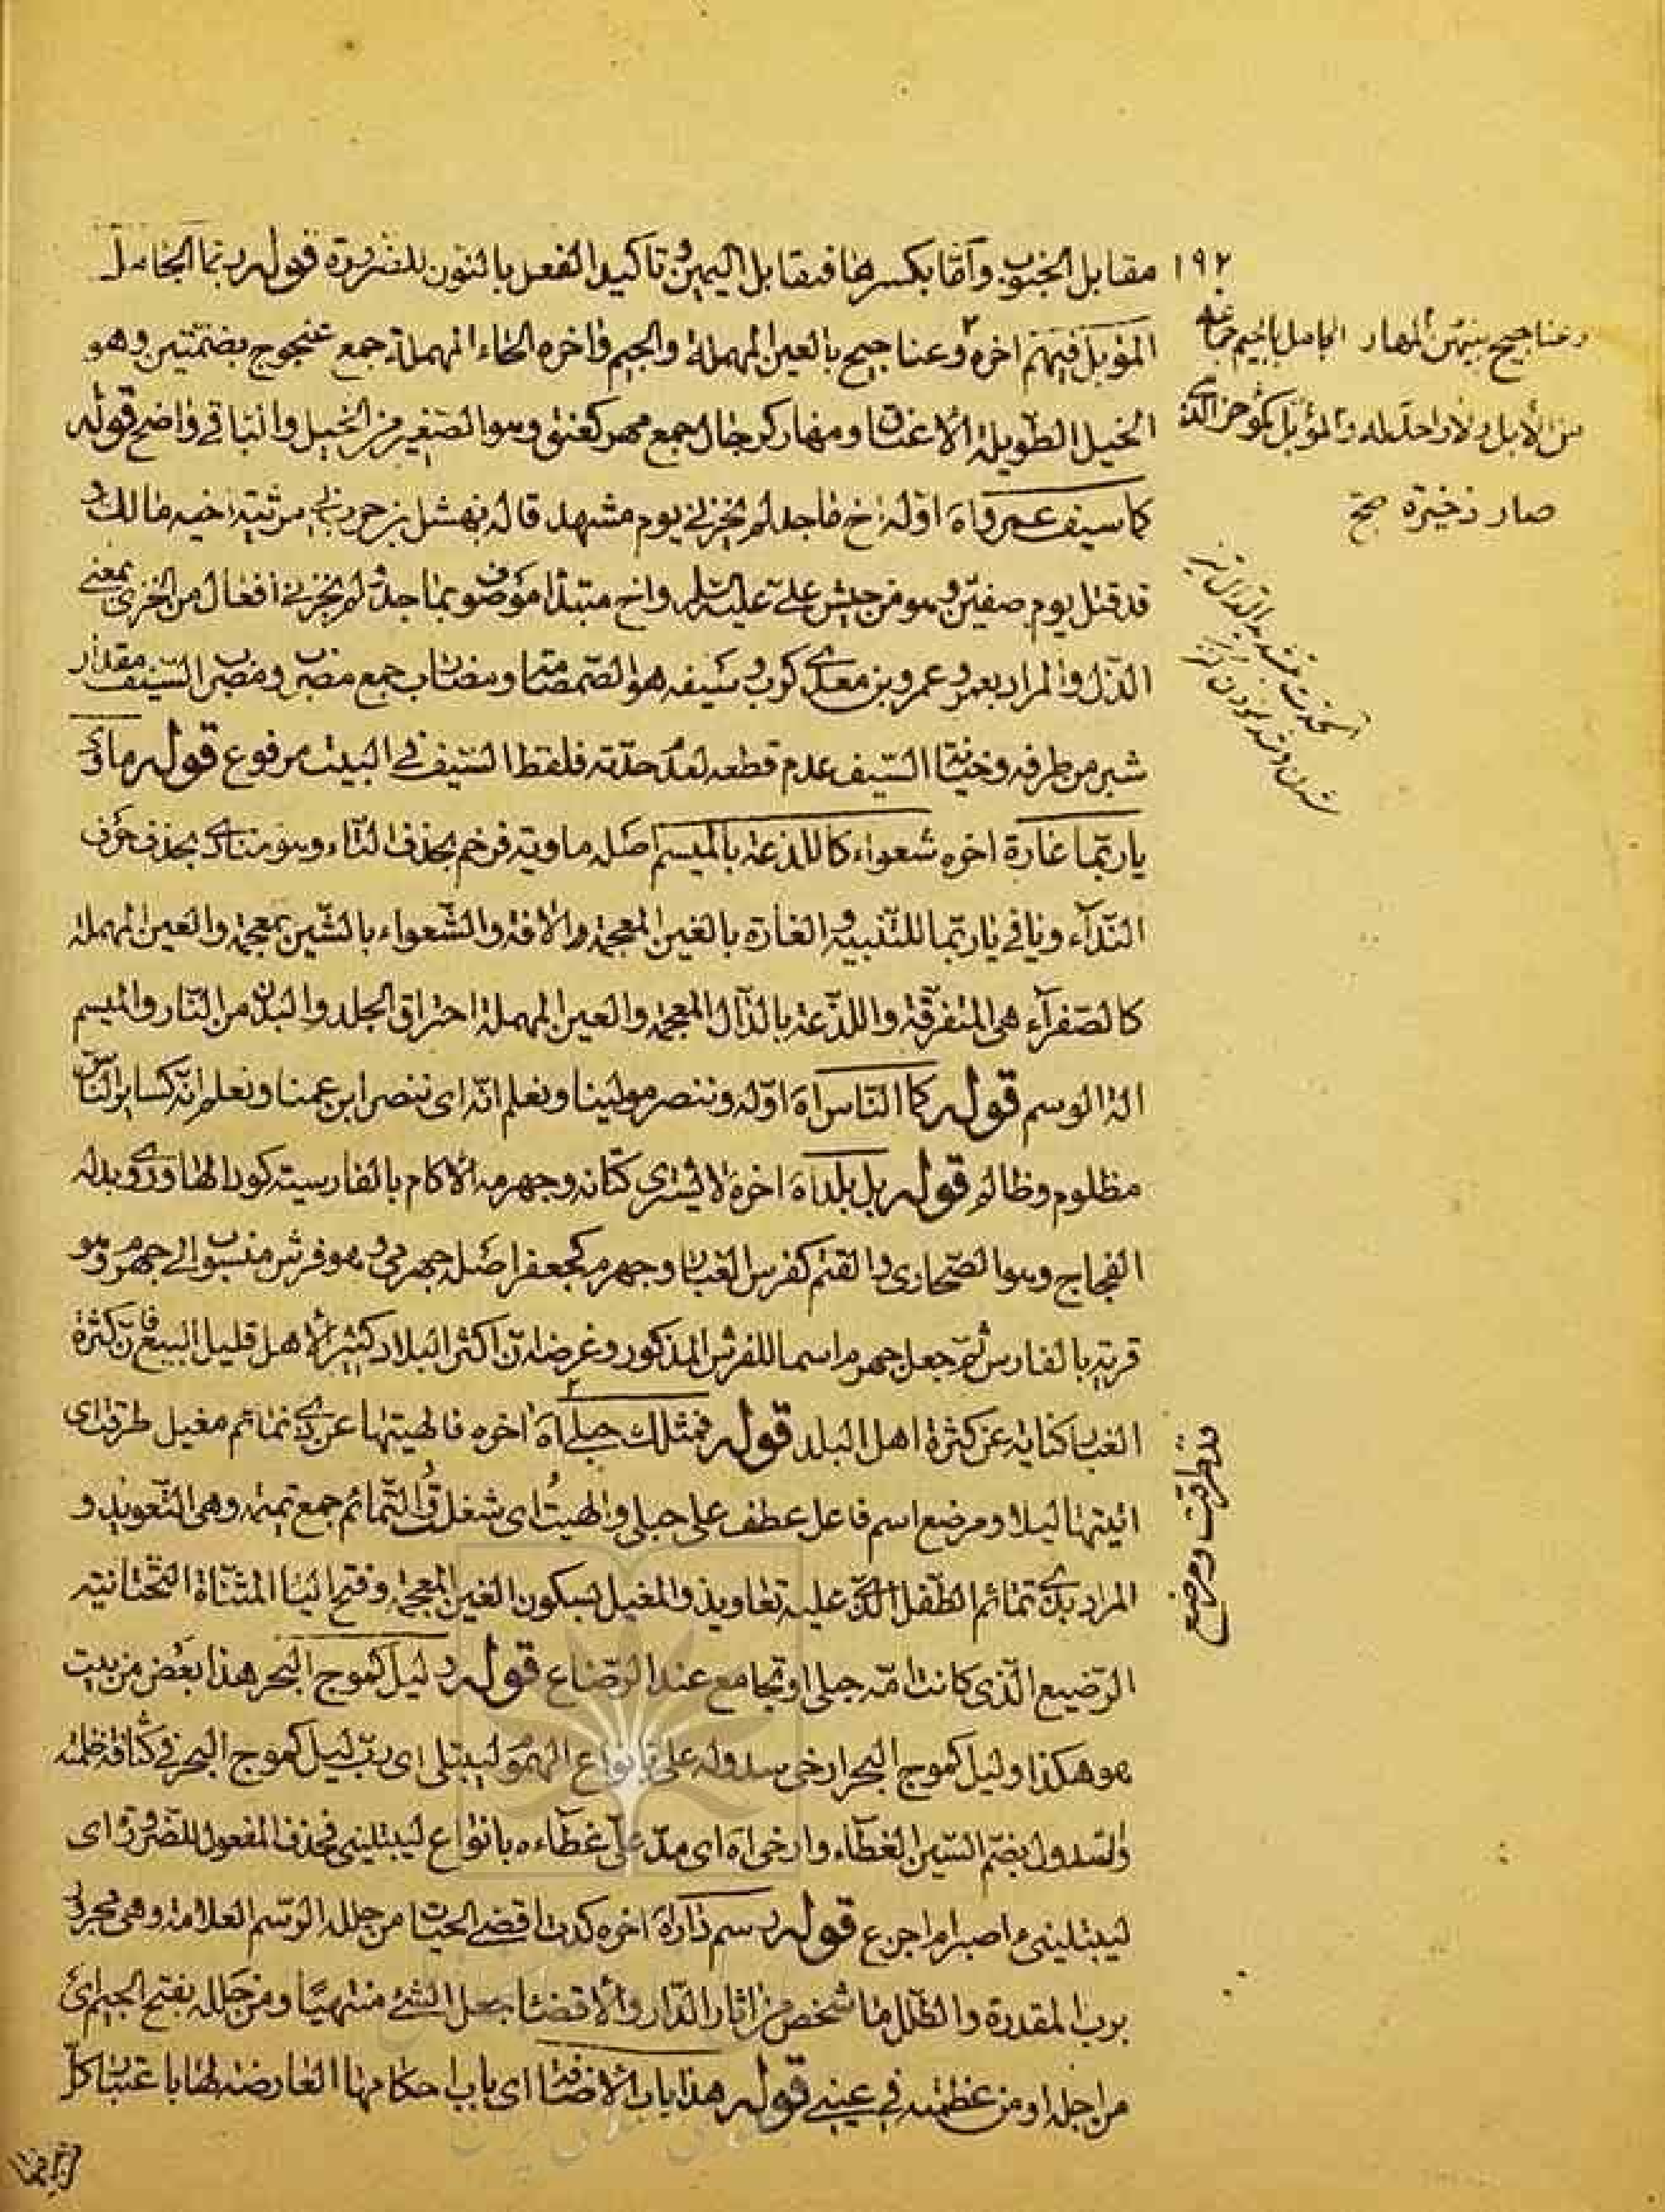 ١٩٢
مقابل الجنوب وامّا بكسرها فمقابل اليمين و تاكيد الفعل بالنون للضرورة قوله ربّما الجامل
المؤبل فيهم اخره وعناجيج بالعين المهملة والجيم واخره الحاء المهملة جمع عنجوج بضمتين وهو
الخيل الطويلة الاعناق ومهار كرجال جمع مهر كعنق وهو الصغير من الخيل والباقي واضح قوله
كما سيف عمرو اه اوّله اخ ماجد لم يخزني يوم مشهد قاله نهشل بن حري في مرثية اخيه مالك و
قد قتل يوم صفين وهو من جيش علي عليه السلم واخ مبتدأ موصوف بماجد ولم يخزني افعال من الخزي بمعنى
الذل والمراد بعمرو عمرو بن معدي كرب وسيفه هو الصمصامة ومضارب جمع مضرب ومضرب السيف مقدار
شبر من طرفه وخيانة السيف عدم قطعه لعدم حدته فلفظ السيف في البيت مرفوع قوله ماوي
يا ربّتما غارة اخره شعواء كاللذعة بالميسم اصله ماوية فرخم بحذف التاء وهو منادى بحذف حرف
النداء ويا في يا ربتما للتنبيه والغارة بالغين المعجمة والافة والشعواء بالشين معجمة والعين المهملة
كالصفراء هي المتفرقة واللذعة بالذال المعجمة والعين المهملة احتراق الجلد والبدن من النار والميسم
الة الوسم قوله كما الناس اه اوله وننصر مولينا ونعلم انّه اى ننصر ابن عمنا ونعلم انّه كساير الناس
مظلوم وظالم قوله بل بلد اه اخره لا يشترى كتانه وجهرمه الاكام بالفارسية كورالها ورى وبدله
الفجاج وهو الصحارى والقتم كفرس الغبار وجهرم كجعفر اصله جهرمي وهو فرش منسوب الى جهرم وهو
قرية بالفارس ثم جعل جهرم اسما للفرش المذكور وغرضه ان اكثر البلاد كثير الاهل قليل البيع فان كثرة
الغبار كناية عن كثرة اهل البلد قوله فمثلك حبلى اه اخره فالهيتها عن ذي تمائم مغيل طرقت اى
اتيتها ليلا ومرضع اسم فاعل عطف على حبلى والهيت اى شغلت والتمائم جمع تميمة وهي التعويذ و
المراد بذي تمائم الطفل الذي عليه تعاويذ والمغيل بسكون الغين المعجمة وفتح الياء المثناة التحتانية
الرضيع الذى كانت امّه حبلى او تجامع عند الرضاع قوله وليل كموج البحر هذا بعض من بيت
هو هكذا وليل كموج البحر ارخى سدوله علي بانواع الهموم ليبتلي اى رب ليل كموج البحر في كثافة ظلمته
والسدول بضم السين الغطاء وارخى اه اى مدّ علي غطاءه بانواع ليبتليني فحذف المفعول للضرورة اى
ليبتليني ءاصبر ام اجزع قوله رسم دار اه اخره كدت اقضي الحياة من جلله الرسم العلامة وهي مجرور
برب المقدرة والطلل ما شخص من اثار الدار والاقضاء جعل الشئ منتهيا ومن جلله بفتح الجيم اى
من اجله او من عظمته في عيني قوله هذا باب الاضافة اى باب احكامها العارضة لها باعتبار كلّ
وعناجيج بينهن المهار الجامل بالجيم جماعة
من الابل ولا واحد له والمؤبل كمؤخر الذي
صار ذخيرة صح
طرقت ومرضع